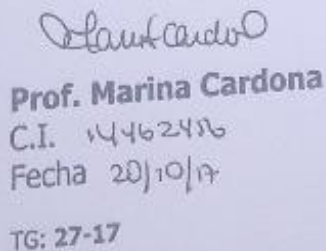 Prof. Marina Cardona
C.I. 14462456
Fecha 20/10/17
TG: 27-17